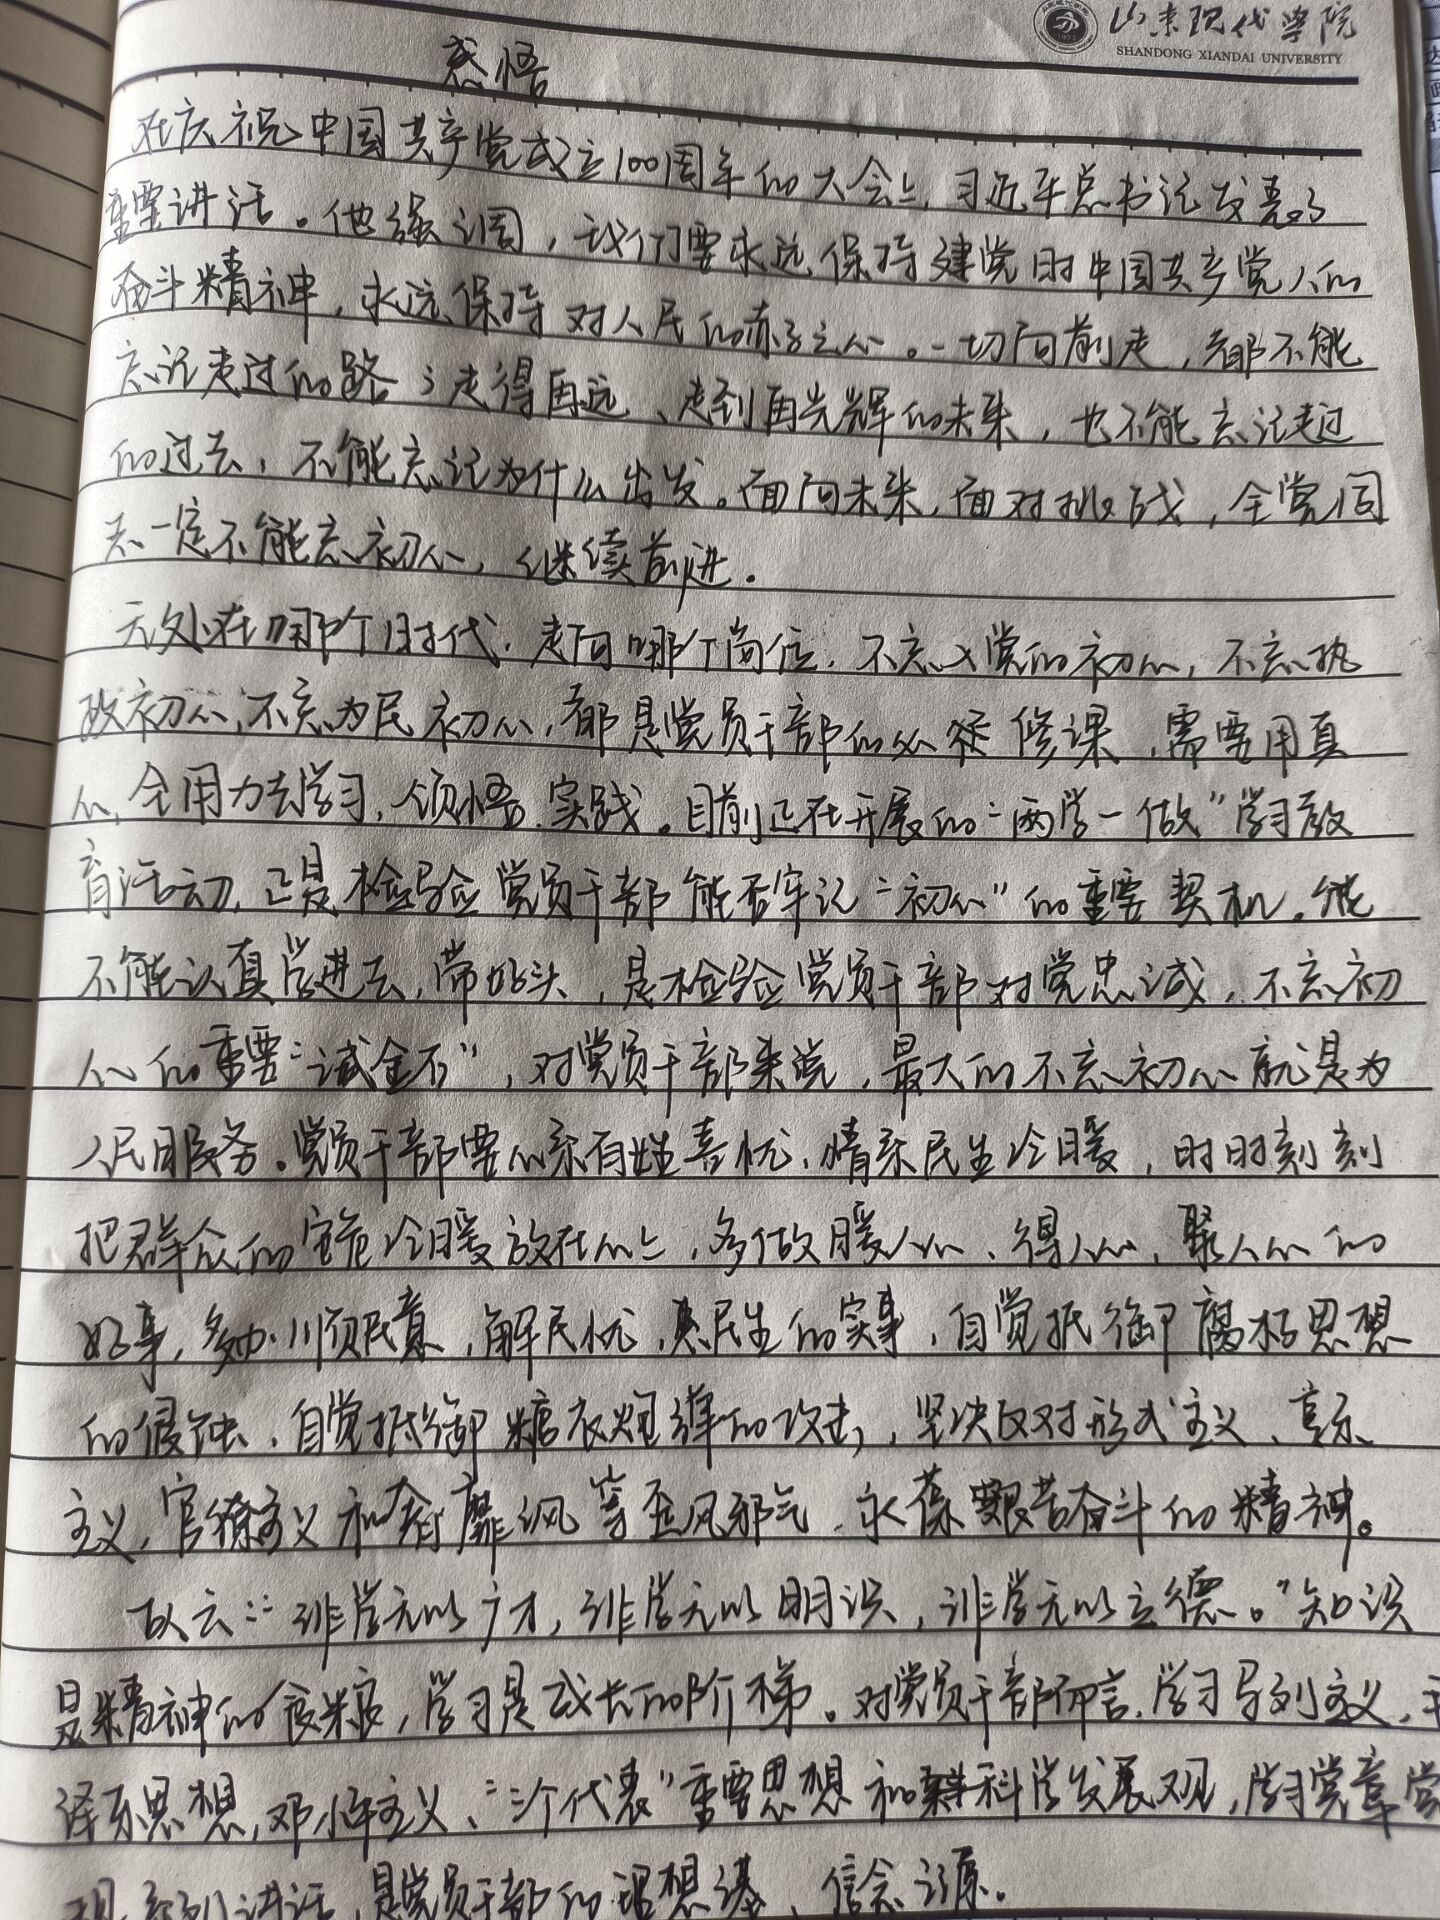 山东现代学院
SHANDONG XIANDAI UNIVERSITY
感悟
在庆祝中国共产党成立100周年的大会上,习近平总书记发表了
重要讲话。他强调,我们要永远保持建党时中国共产党人的
奋斗精神,永远保持对人民的赤子之心。一切向前走,都不能
忘记走过的路;走得再远、走到再光辉的未来,也不能忘记走过
的过去,不能忘记为什么出发。面向未来,面对挑战,全党同
志一定不能忘初心,继续前进。
无处在哪个时代,走向哪个岗位,不忘入党的初心,不忘执
政初心,不忘为民初心,都是党员干部的必修课,需要用真
心,全用力去学习,领悟、实践。目前正在开展的“两学一做”学习教
育活动,正是检验党员干部能否牢记“初心”的重要契机。能
不能认真学进去,带好头,是检验党员干部对党忠诚,不忘初
心的重要“试金石”,对党员干部来说,最大的不忘初心就是为
人民服务。党员干部要心系百姓喜忧,情系民生冷暖,时时刻刻
把群众的安危冷暖放在心上,多做暖人心、得人心,聚人心的
好事,多办顺民意,解民忧,惠民生的实事,自觉抵御腐朽思想
的侵蚀,自觉抵御糖衣炮弹的攻击,坚决反对形式主义、享乐
主义,官僚主义和奢靡之风等歪风邪气,永葆艰苦奋斗的精神。
故云:“非学无以广才,非学无以明识,非学无以立德。”知识
是精神的食粮,学习是成长的阶梯。对党员干部而言,学习马列主义,毛
泽东思想,邓小平主义、“三个代表”重要思想和科学发展观,学习党章党
规,系列讲话,是党员干部的理想之基、信念之源。